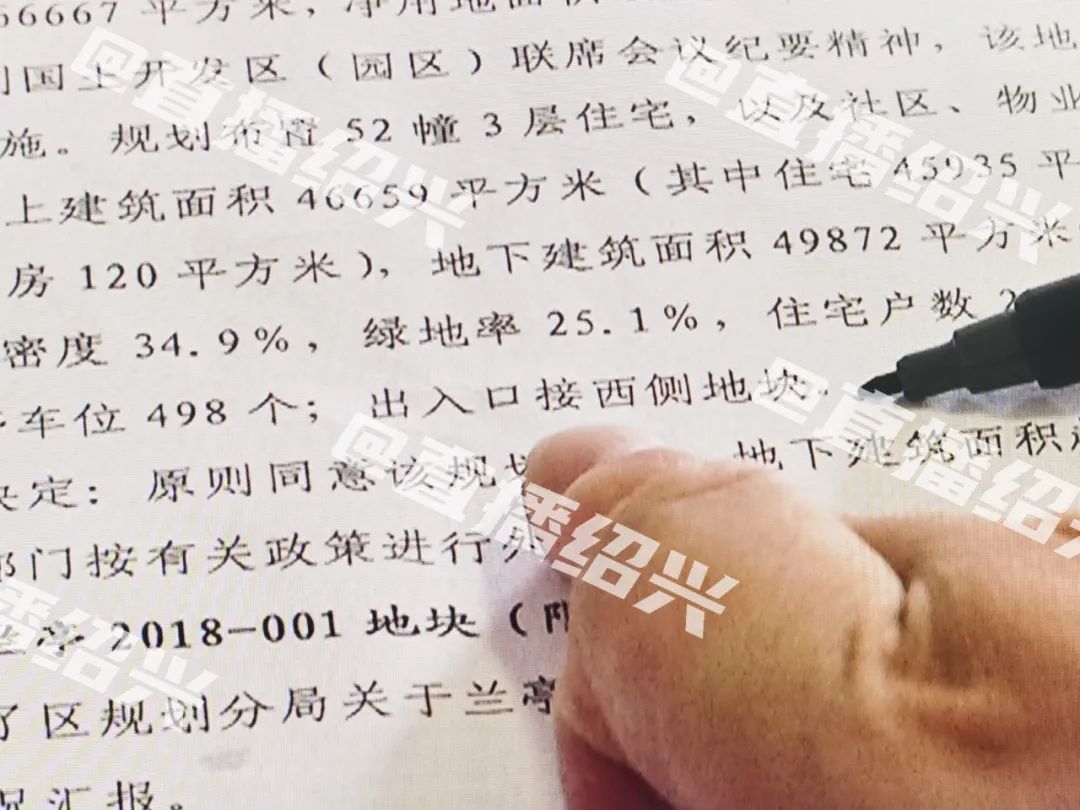 66667 平方米，净用地面积
国土开发区（园区）联席会议纪要精神，该地
施。规划布置 52 幢 3 层住宅，以及社区、物业
上建筑面积 46659 平方米（其中住宅 45935 平
房 120 平方米），地下建筑面积 49872 平方米
密度 34.9%，绿地率 25.1%，住宅户数 2
车位 498 个；出入口接西侧地块
决定：原则同意该规划 地下建筑面积
部门按有关政策进行
亭 2018-001 地块（
了区规划分局关于兰亭
况汇报。
@直播绍兴
@直播绍兴
@直播绍兴
@直播绍兴
直播绍兴